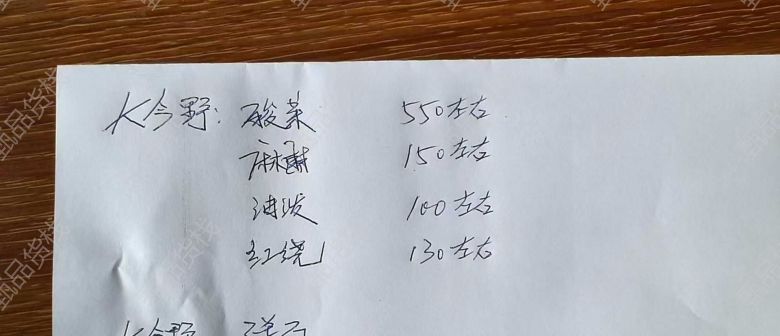 K今野: 酸菜 550左右
麻椒 150左右
油泼 100左右
红烧 130左右
K今野
甄品货栈